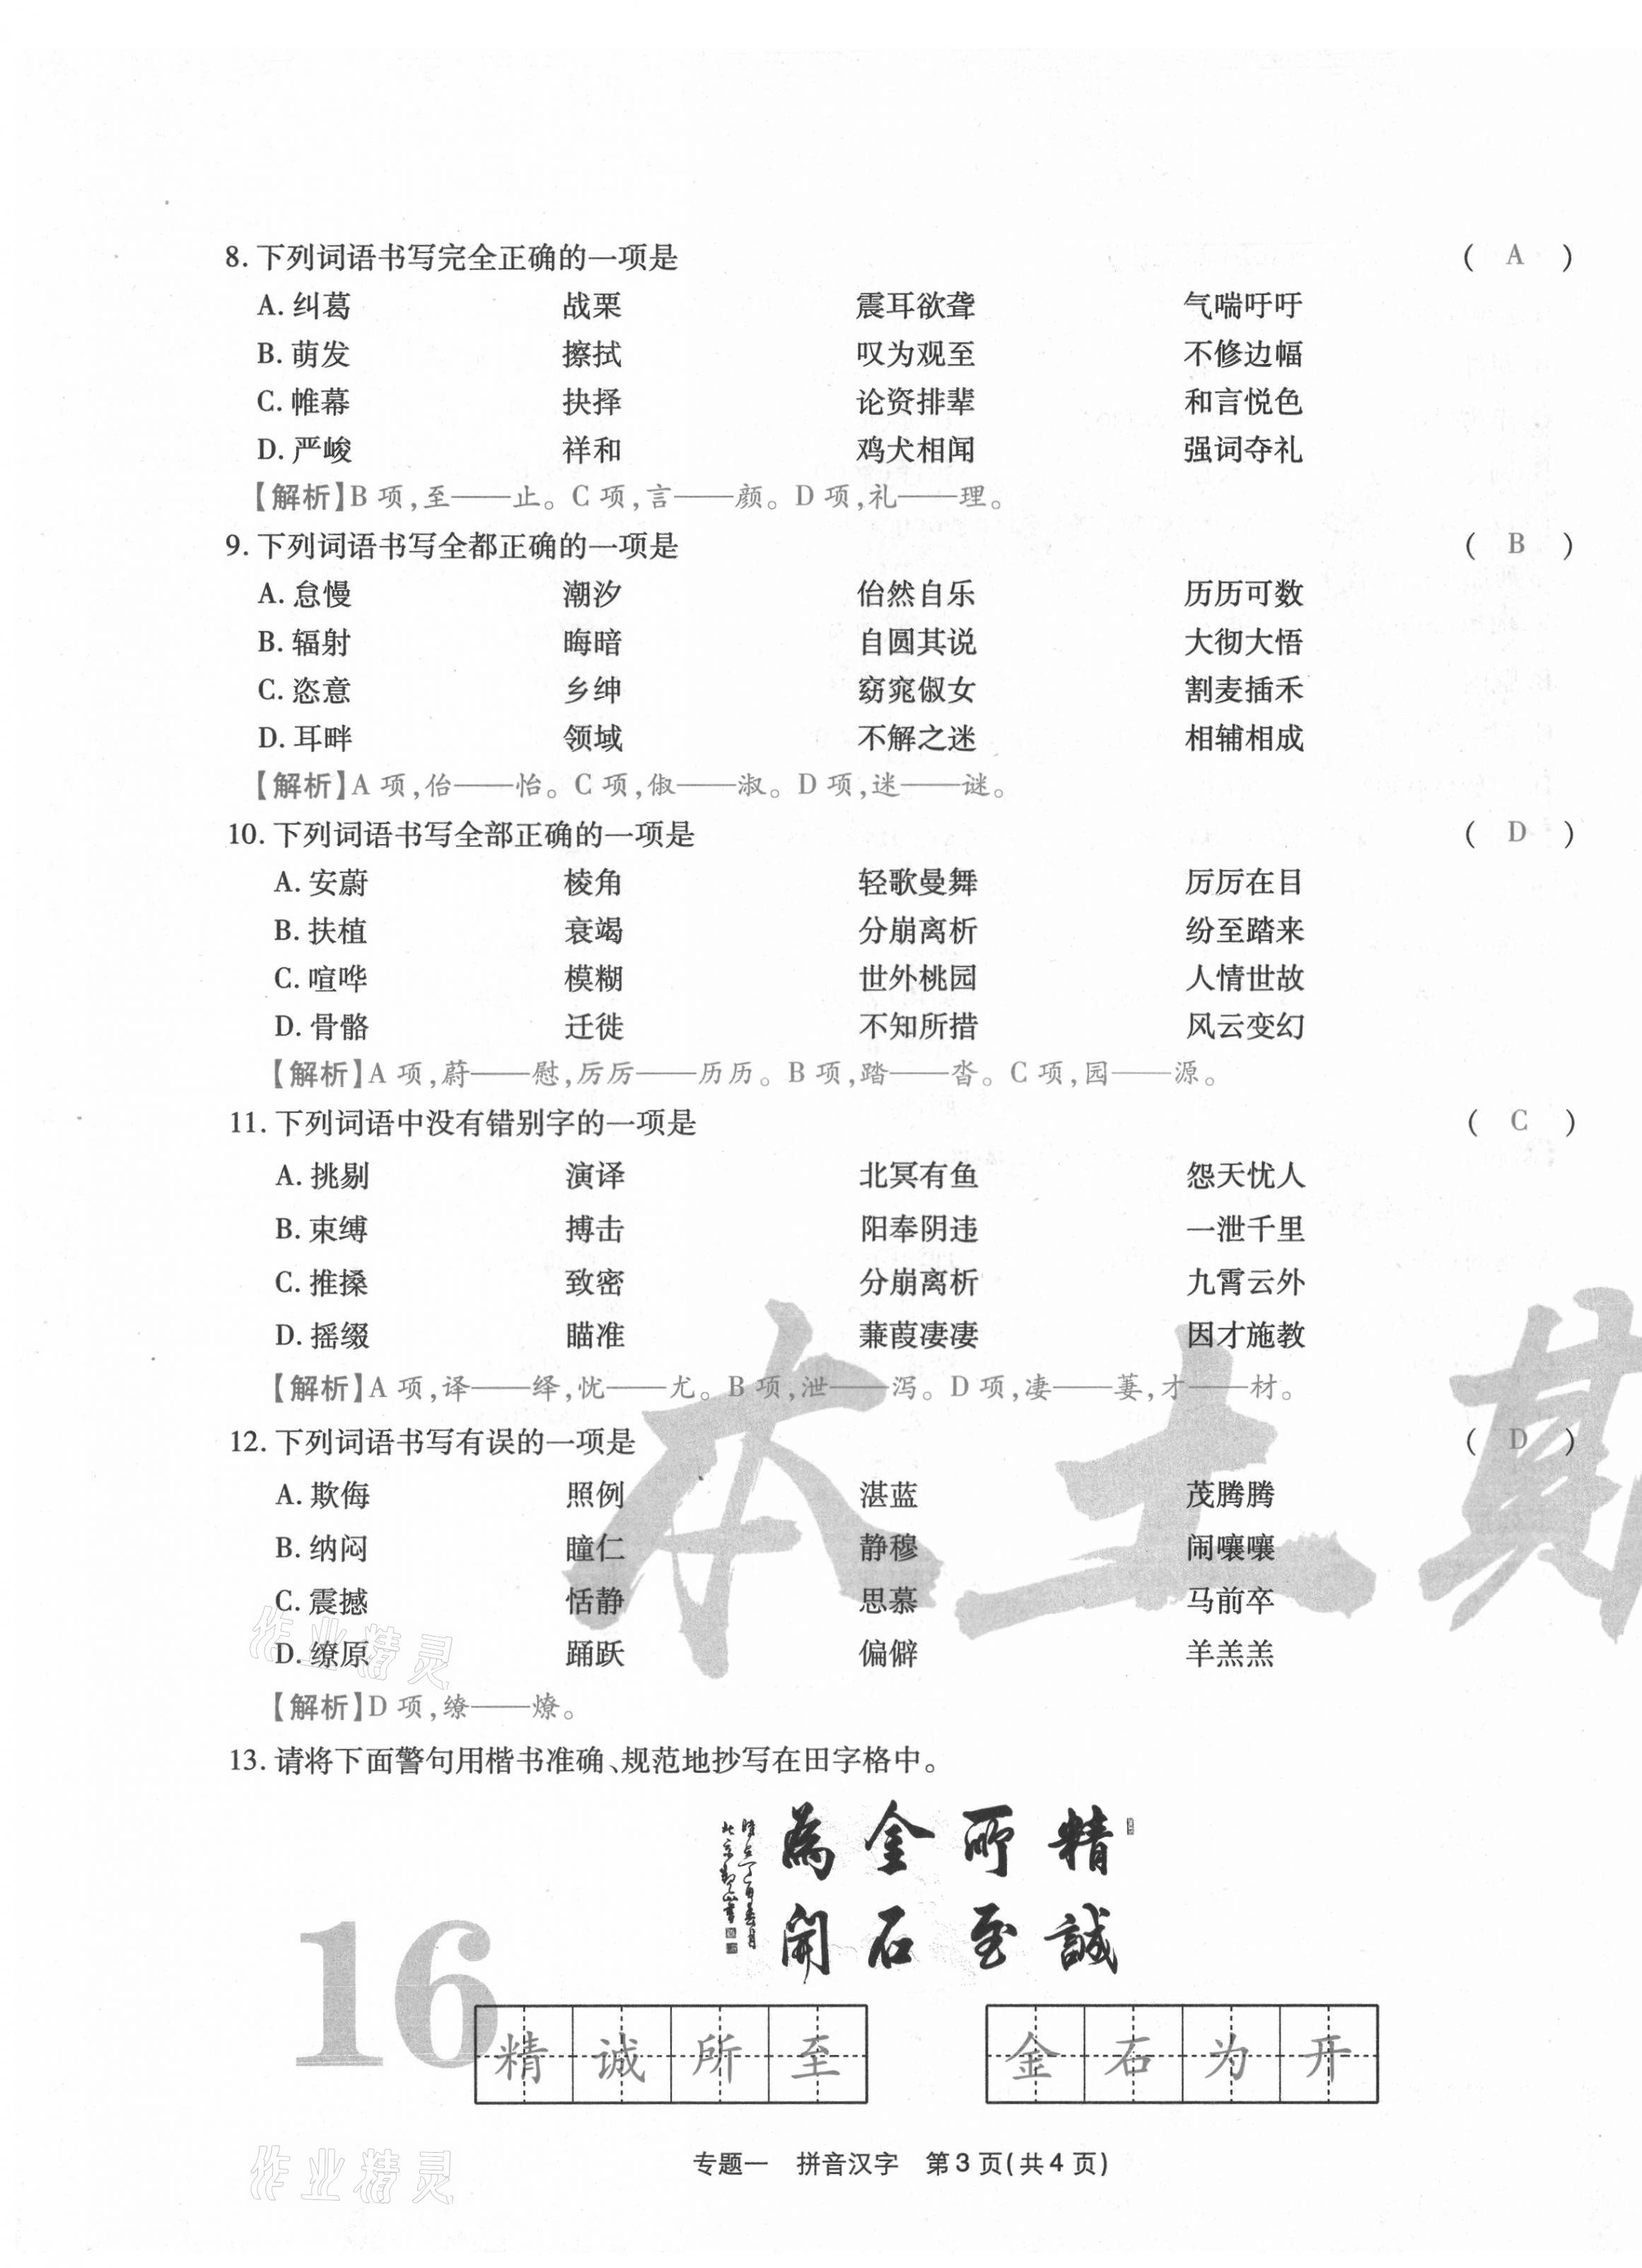 8. 下列词语书写完全正确的一项是 ( A )
A. 纠葛 战栗 震耳欲聋 气喘吁吁
B. 萌发 擦拭 叹为观至 不修边幅
C. 帷幕 抉择 论资排辈 和言悦色
D. 严峻 祥和 鸡犬相闻 强词夺礼
【解析】B 项,至——止。C 项,言——颜。D 项,礼——理。
9. 下列词语书写全都正确的一项是 ( B )
A. 怠慢 潮汐 佁然自乐 历历可数
B. 辐射 晦暗 自圆其说 大彻大悟
C. 恣意 乡绅 窈窕俶女 割麦插禾
D. 耳畔 领域 不解之迷 相辅相成
【解析】A 项,佁——怡。C 项,俶——淑。D 项,迷——谜。
10. 下列词语书写全部正确的一项是 ( D )
A. 安蔚 棱角 轻歌曼舞 厉厉在目
B. 扶植 衰竭 分崩离析 纷至踏来
C. 喧哗 模糊 世外桃园 人情世故
D. 骨骼 迁徙 不知所措 风云变幻
【解析】A 项,蔚——慰,厉厉——历历。B 项,踏——沓。C 项,园——源。
11. 下列词语中没有错别字的一项是 ( C )
A. 挑剔 演译 北冥有鱼 怨天忧人
B. 束缚 搏击 阳奉阴违 一泄千里
C. 推搡 致密 分崩离析 九霄云外
D. 摇缀 瞄准 蒹葭凄凄 因才施教
【解析】A 项,译——绎,忧——尤。B 项,泄——泻。D 项,凄——萋,才——材。
12. 下列词语书写有误的一项是 ( D )
A. 欺侮 照例 湛蓝 茂腾腾
B. 纳闷 瞳仁 静穆 闹嚷嚷
C. 震撼 恬静 思慕 马前卒
D. 缭原 踊跃 偏僻 羊羔羔
【解析】D 项,缭——燎。
13. 请将下面警句用楷书准确、规范地抄写在田字格中。
精誠
所至
金石
為開
精诚所至 金石为开
专题一 拼音汉字 第3页(共4页)
16
本土期
作业精灵
作业精灵